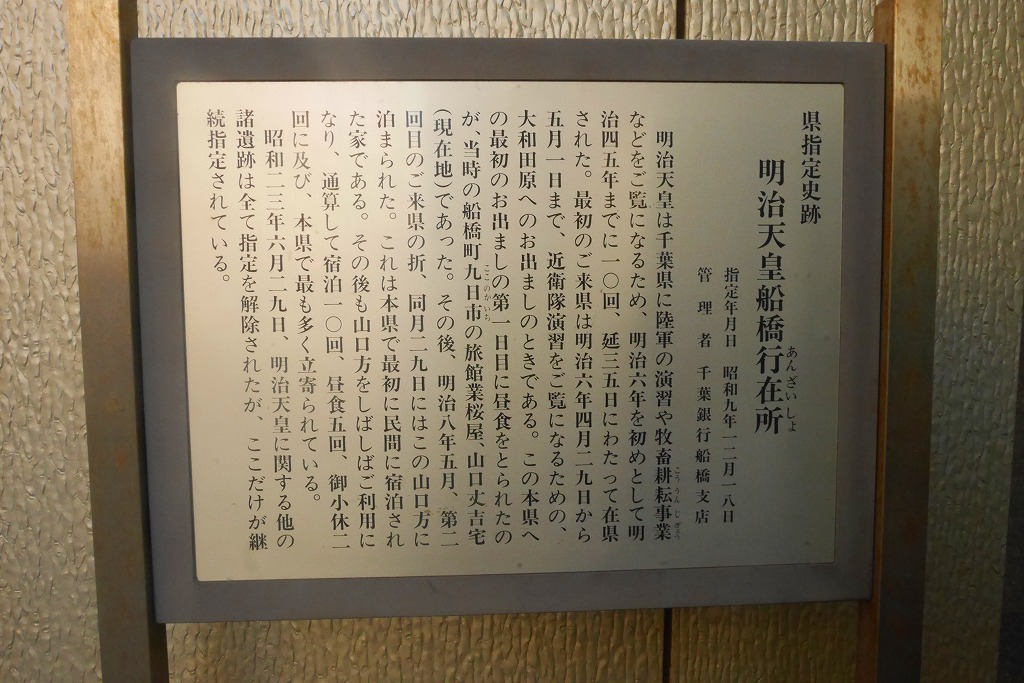 県指定史跡
明治天皇船橋行在所
あんざいしょ
指定年月日　昭和九年一二月一八日
管理者　千葉銀行船橋支店
明治天皇は千葉県に陸軍の演習や牧畜耕耘事業
こううんじぎょう
などをご覧になるため、明治六年を初めとして明
治四五年までに一〇回、延三五日にわたって在県
された。最初のご来県は明治六年四月二九日から
五月一日まで、近衛隊演習をご覧になるための、
大和田原へのお出ましのときである。この本県へ
の最初のお出ましの第一日目に昼食をとられたの
が、当時の船橋町九日市の旅館業桜屋、山口丈吉宅
ここのかいち
(現在地)であった。その後、明治八年五月、第二
回目のご来県の折、同月二九日にはこの山口方に
泊まられた。これは本県で最初に民間に宿泊され
た家である。その後も山口方をしばしばご利用に
なり、通算して宿泊一〇回、昼食五回、御小休二
回に及び、本県で最も多く立寄られている。
昭和二三年六月二九日、明治天皇に関する他の
諸遺跡は全て指定を解除されたが、ここだけが継
続指定されている。